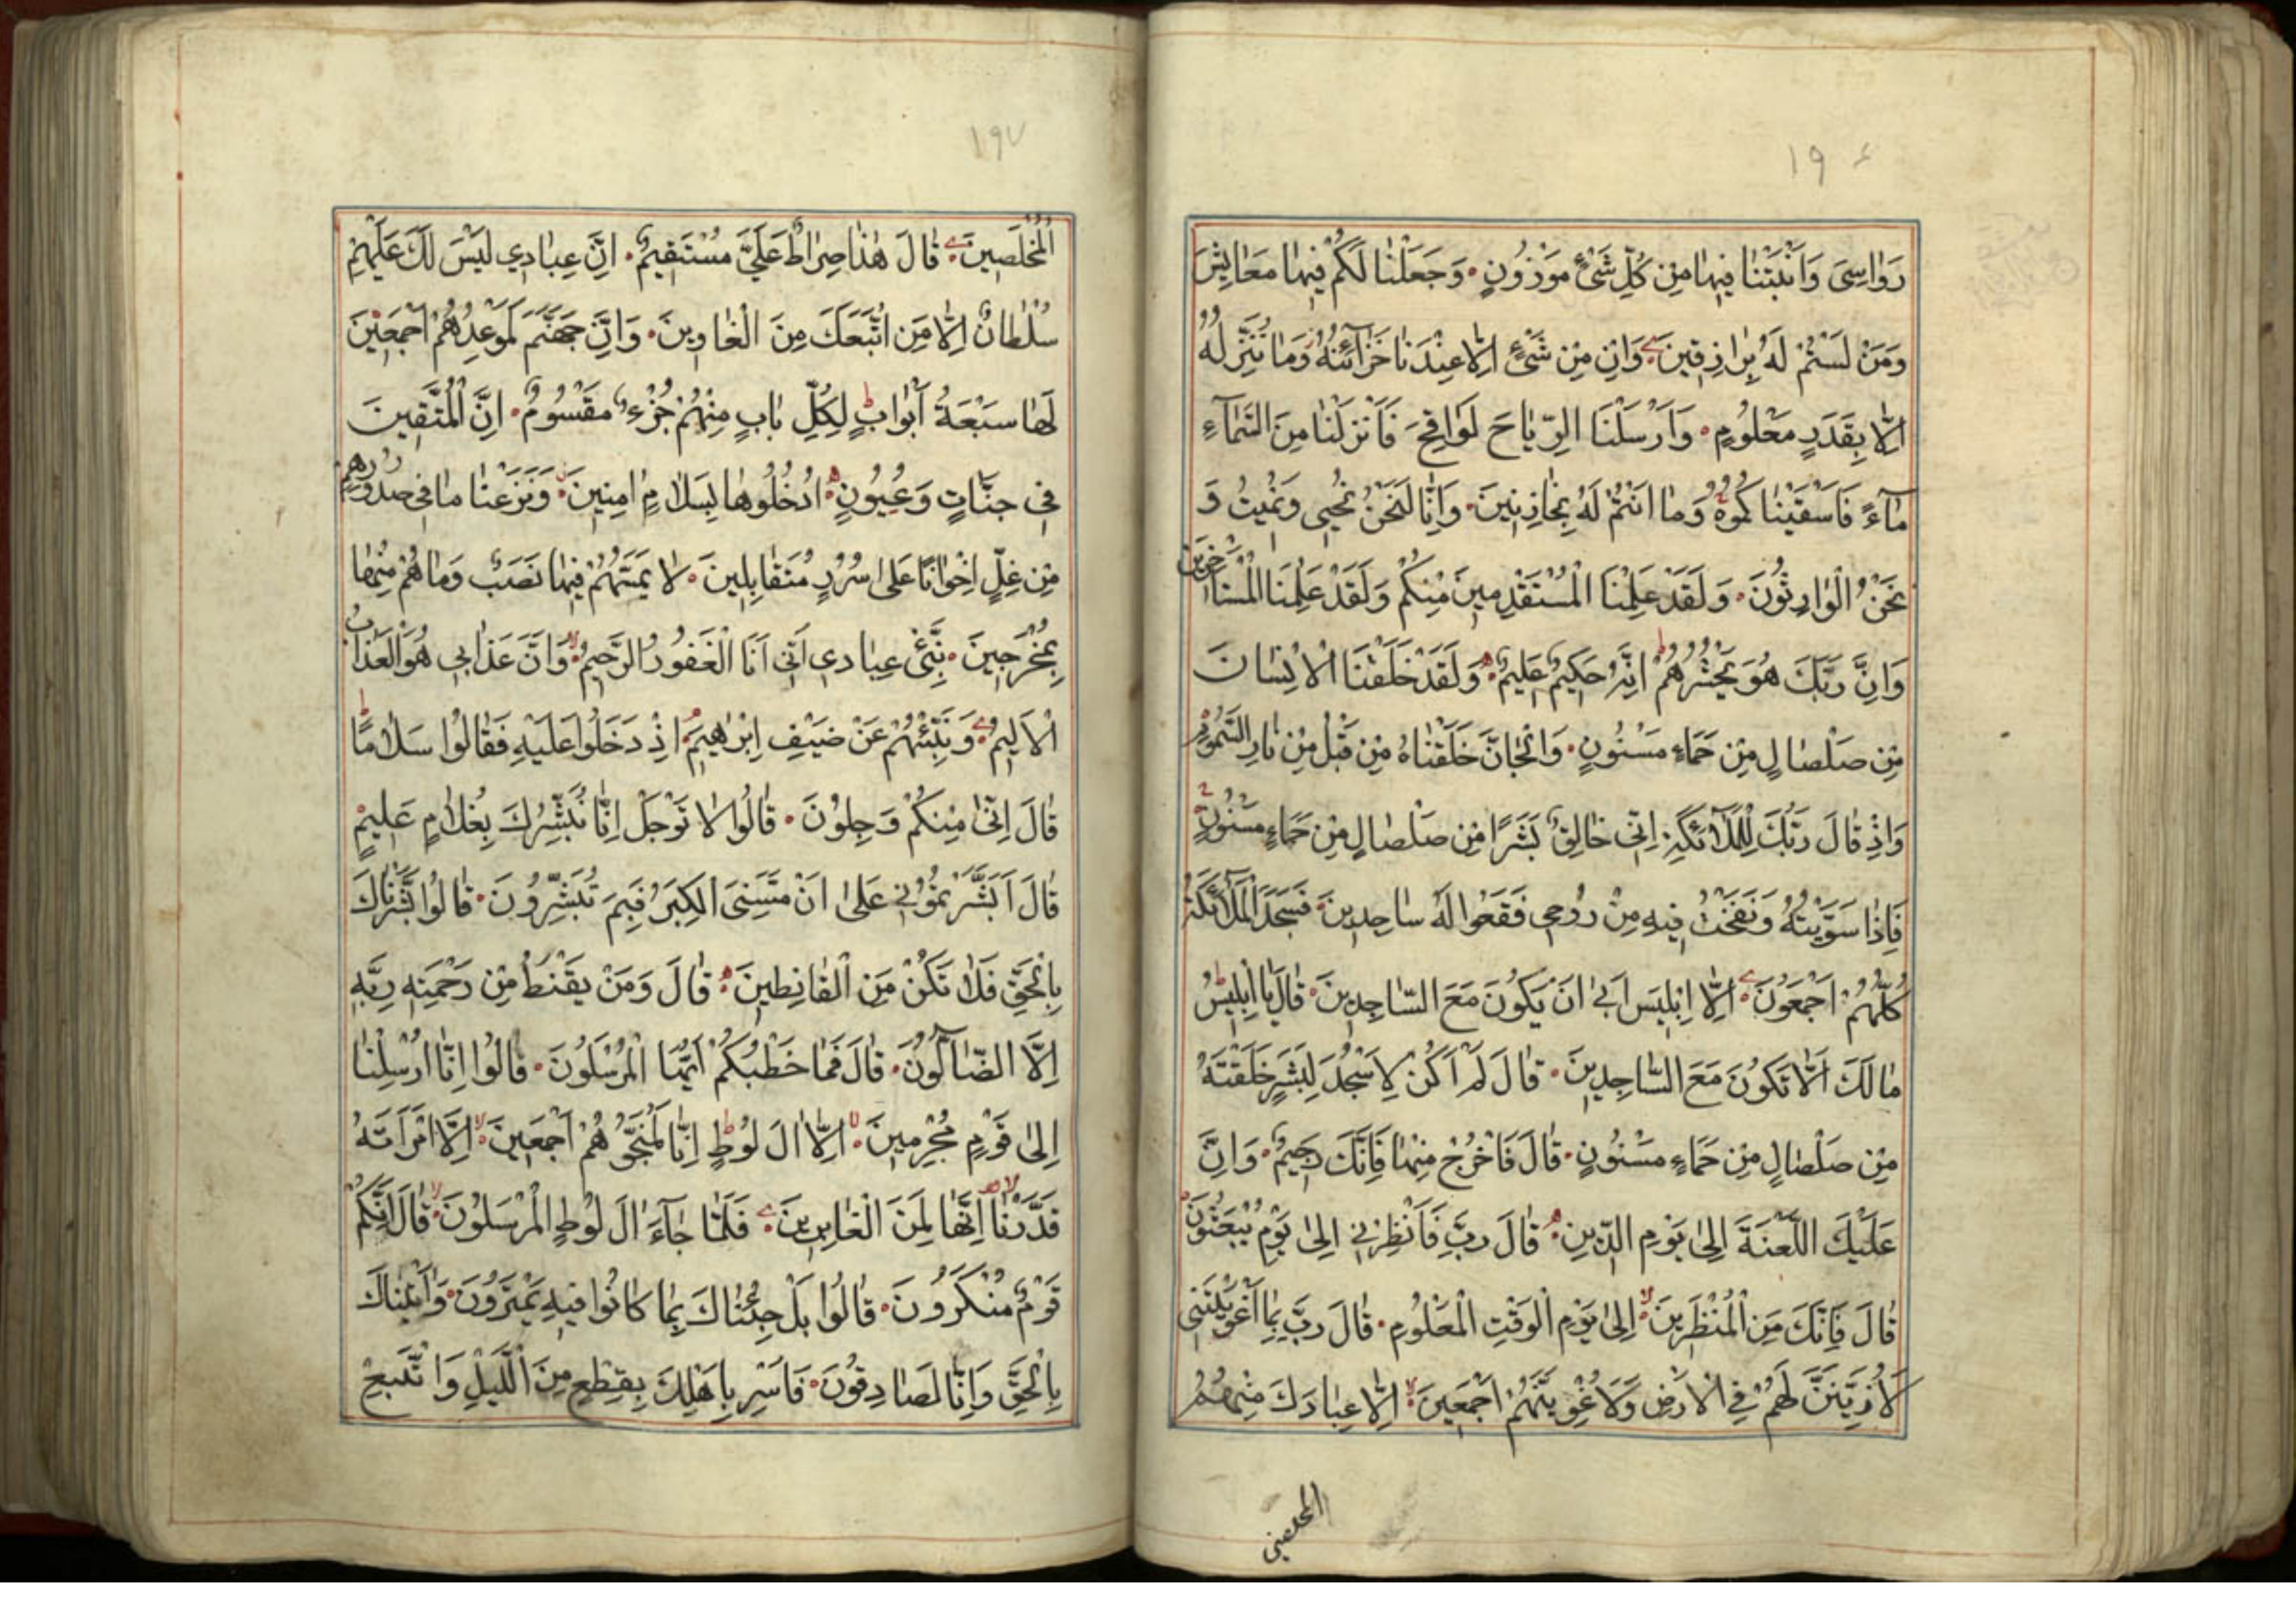 ١٩٤
رَوَاسِيَ وَاَنْبَتْنَا فِيهَا مِنْ كُلِّ شَيْءٍ مَوْزُونٍ وَجَعَلْنَا لَكُمْ فِيهَا مَعَايِشَ
وَمَنْ لَسْتُمْ لَهُ بِرَازِقِينَ وَاِنْ مِنْ شَيْءٍ اِلَّا عِنْدَنَا خَزَآئِنُهُ وَمَا نُنَزِّلُهُ
اِلَّا بِقَدَرٍ مَعْلُومٍ وَاَرْسَلْنَا الرِّيَاحَ لَوَاقِحَ فَاَنْزَلْنَا مِنَ السَّمَآءِ
مَآءً فَاَسْقَيْنَاكُمُوهُ وَمَا اَنْتُمْ لَهُ بِخَازِنِينَ وَاِنَّا لَنَحْنُ نُحْيِي وَنُمِيتُ وَ
نَحْنُ الْوَارِثُونَ وَلَقَدْ عَلِمْنَا الْمُسْتَقْدِمِينَ مِنْكُمْ وَلَقَدْ عَلِمْنَا الْمُسْتَأْخِرِينَ
وَاِنَّ رَبَّكَ هُوَ يَحْشُرُهُمْ اِنَّهُ حَكِيمٌ عَلِيمٌ وَلَقَدْ خَلَقْنَا الْاِنْسَانَ
مِنْ صَلْصَالٍ مِنْ حَمَاءٍ مَسْنُونٍ وَالْجَانَّ خَلَقْنَاهُ مِنْ قَبْلُ مِنْ نَارِ السَّمُومِ
وَاِذْ قَالَ رَبُّكَ لِلْمَلَآئِكَةِ اِنِّي خَالِقٌ بَشَرًا مِنْ صَلْصَالٍ مِنْ حَمَاءٍ مَسْنُونٍ
فَاِذَا سَوَّيْتُهُ وَنَفَخْتُ فِيهِ مِنْ رُوحِي فَقَعُوا لَهُ سَاجِدِينَ فَسَجَدَ الْمَلَآئِكَةُ
كُلُّهُمْ اَجْمَعُونَ اِلَّا اِبْلِيسَ اَبَى اَنْ يَكُونَ مَعَ السَّاجِدِينَ قَالَ يَا اِبْلِيسُ
مَا لَكَ اَلَّا تَكُونَ مَعَ السَّاجِدِينَ قَالَ لَمْ اَكُنْ لِاَسْجُدَ لِبَشَرٍ خَلَقْتَهُ
مِنْ صَلْصَالٍ مِنْ حَمَاءٍ مَسْنُونٍ قَالَ فَاخْرُجْ مِنْهَا فَاِنَّكَ رَجِيمٌ وَاِنَّ
عَلَيْكَ اللَّعْنَةَ اِلَى يَوْمِ الدِّينِ قَالَ رَبِّ فَاَنْظِرْنِي اِلَى يَوْمِ يُبْعَثُونَ
قَالَ فَاِنَّكَ مِنَ الْمُنْظَرِينَ اِلَى يَوْمِ الْوَقْتِ الْمَعْلُومِ قَالَ رَبِّ بِمَا اَغْوَيْتَنِي
لَاُزَيِّنَنَّ لَهُمْ فِي الْاَرْضِ وَلَاُغْوِيَنَّهُمْ اَجْمَعِينَ اِلَّا عِبَادَكَ مِنْهُمُ
المخلصين
١٩٧
الْمُخْلَصِينَ قَالَ هٰذَا صِرَاطٌ عَلَيَّ مُسْتَقِيمٌ اِنَّ عِبَادِي لَيْسَ لَكَ عَلَيْهِمْ
سُلْطَانٌ اِلَّا مَنِ اتَّبَعَكَ مِنَ الْغَاوِينَ وَاِنَّ جَهَنَّمَ لَمَوْعِدُهُمْ اَجْمَعِينَ
لَهَا سَبْعَةُ اَبْوَابٍ لِكُلِّ بَابٍ مِنْهُمْ جُزْءٌ مَقْسُومٌ اِنَّ الْمُتَّقِينَ
فِي جَنَّاتٍ وَعُيُونٍ اُدْخُلُوهَا بِسَلَامٍ اٰمِنِينَ وَنَزَعْنَا مَا فِي صُدُورِهِمْ
مِنْ غِلٍّ اِخْوَانًا عَلَى سُرُرٍ مُتَقَابِلِينَ لَا يَمَسُّهُمْ فِيهَا نَصَبٌ وَمَا هُمْ مِنْهَا
بِمُخْرَجِينَ نَبِّئْ عِبَادِي اَنِّي اَنَا الْغَفُورُ الرَّحِيمُ وَاَنَّ عَذَابِي هُوَ الْعَذَابُ
الْاَلِيمُ وَنَبِّئْهُمْ عَنْ ضَيْفِ اِبْرٰهِيمَ اِذْ دَخَلُوا عَلَيْهِ فَقَالُوا سَلَامًا
قَالَ اِنَّا مِنْكُمْ وَجِلُونَ قَالُوا لَا تَوْجَلْ اِنَّا نُبَشِّرُكَ بِغُلَامٍ عَلِيمٍ
قَالَ اَبَشَّرْتُمُونِي عَلَى اَنْ مَسَّنِيَ الْكِبَرُ فَبِمَ تُبَشِّرُونَ قَالُوا بَشَّرْنَاكَ
بِالْحَقِّ فَلَا تَكُنْ مِنَ الْقَانِطِينَ قَالَ وَمَنْ يَقْنَطُ مِنْ رَحْمَةِ رَبِّهِ
اِلَّا الضَّآلُّونَ قَالَ فَمَا خَطْبُكُمْ اَيُّهَا الْمُرْسَلُونَ قَالُوا اِنَّا اُرْسِلْنَا
اِلَى قَوْمٍ مُجْرِمِينَ اِلَّا اٰلَ لُوطٍ اِنَّا لَمُنَجُّوهُمْ اَجْمَعِينَ اِلَّا امْرَاَتَهُ
قَدَّرْنَا اِنَّهَا لَمِنَ الْغَابِرِينَ فَلَمَّا جَآءَ اٰلَ لُوطٍ الْمُرْسَلُونَ قَالَ اِنَّكُمْ
قَوْمٌ مُنْكَرُونَ قَالُوا بَلْ جِئْنَاكَ بِمَا كَانُوا فِيهِ يَمْتَرُونَ وَاَتَيْنَاكَ
بِالْحَقِّ وَاِنَّا لَصَادِقُونَ فَاَسْرِ بِاَهْلِكَ بِقِطْعٍ مِنَ الَّيْلِ وَاتَّبِعْ